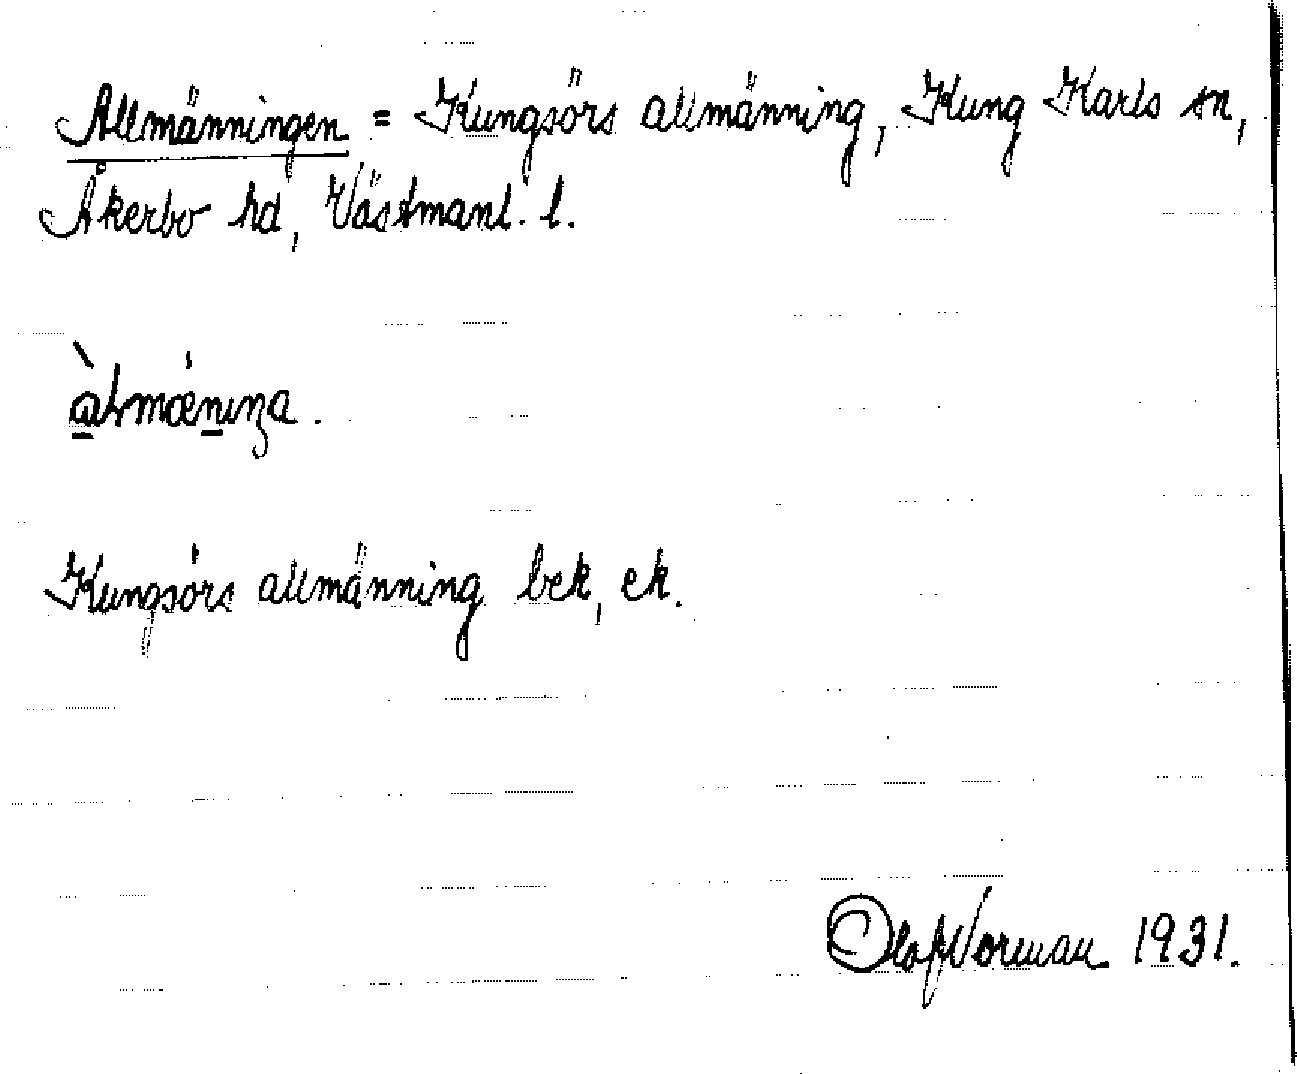 Allmänningen = Kungsörs allmänning, Kung Karls sn,
Åkerbo hd, Västmanl. l.
àlmænıŋa.
Kungsörs allmänning bek, ek.
Olof Norman 1931.